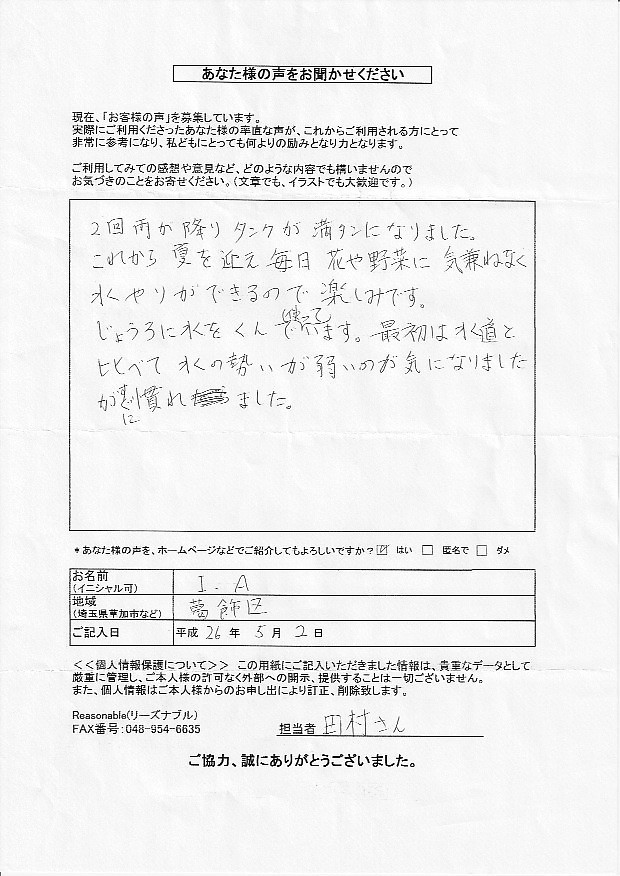 あなた様の声をお聞かせください
現在、「お客様の声」を募集しています。
実際にご利用くださったあなた様の率直な声が、これからご利用される方にとって
非常に参考になり、私どもにとっても何よりの励みとなり力となります。
ご利用してみての感想や意見など、どのような内容でも構いませんので
お気づきのことをお寄せください。（文章でも、イラストでも大歓迎です。）
2回雨が降りタンクが満タンになりました。
これから夏を迎え毎日花や野菜に気兼ねなく
水やりができるので楽しみです。
じょうろに水をくんで使っています。最初は水道と
比べて水の勢いが弱いのが気になりました
がすぐに慣れました。
*あなた様の声を、ホームページなどでご紹介してもよろしいですか？☑ はい □ 匿名で □ ダメ
お名前
(イニシャル可)
I.A
地域
(埼玉県草加市など)
葛飾区
ご記入日 平成 26 年 5 月 2 日
<<個人情報保護について>> この用紙にご記入いただきました情報は、貴重なデータとして
厳重に管理し、ご本人様の許可なく外部への開示、提供することは一切ございません。
また、個人情報はご本人様からのお申し出により訂正、削除致します。
Reasonable(リーズナブル)
FAX番号：048-954-6635
担当者 田村さん
ご協力、誠にありがとうございました。